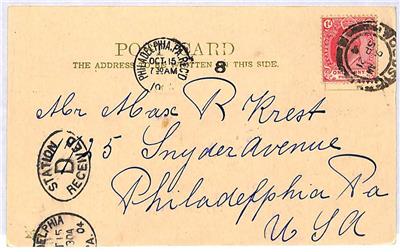 POST CARD
THE ADDRESS TO BE WRITTEN ON THIS SIDE
PHILADELPHIA, PA. REC'D
OCT 15
7 30 AM
8
1d
ONE PENNY
Mr Max R Krest
125 Snyder Avenue
Philadelphia Pa
USA
STATION
D
RECEIVED
OCT 15
30A
04
PA.